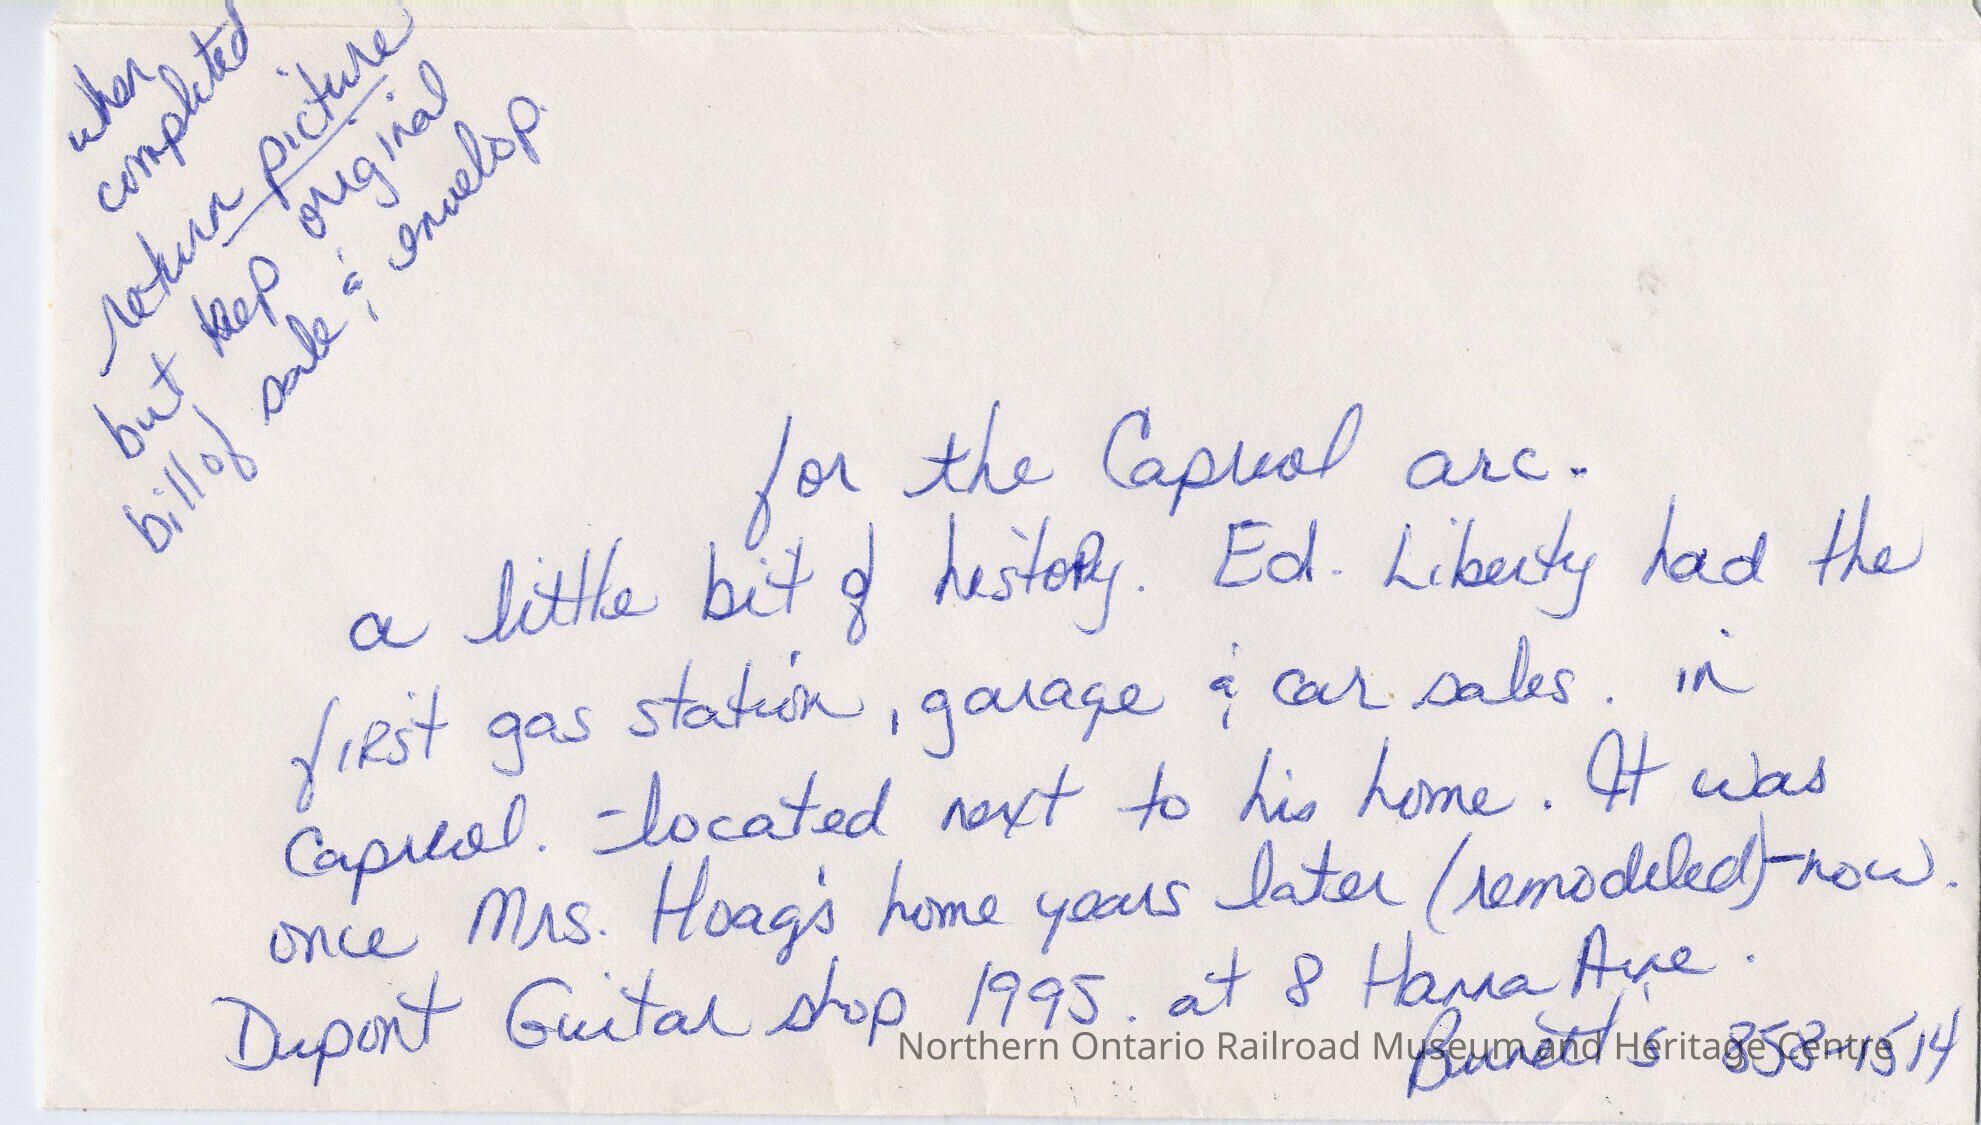 when
completed
return picture
but keep original
bill of sale & envelop.
for the Capreol arc.
a little bit of history. Ed. Liberty had the
first gas station, garage & car sales. in
Capreol. - located next to his home. It was
once Mrs. Hoag's home years later (remodeled) - now.
Dupont Guitar shop 1995. at 8 Hanna Ave.
858-1514
Northern Ontario Railroad Museum and Heritage Centre